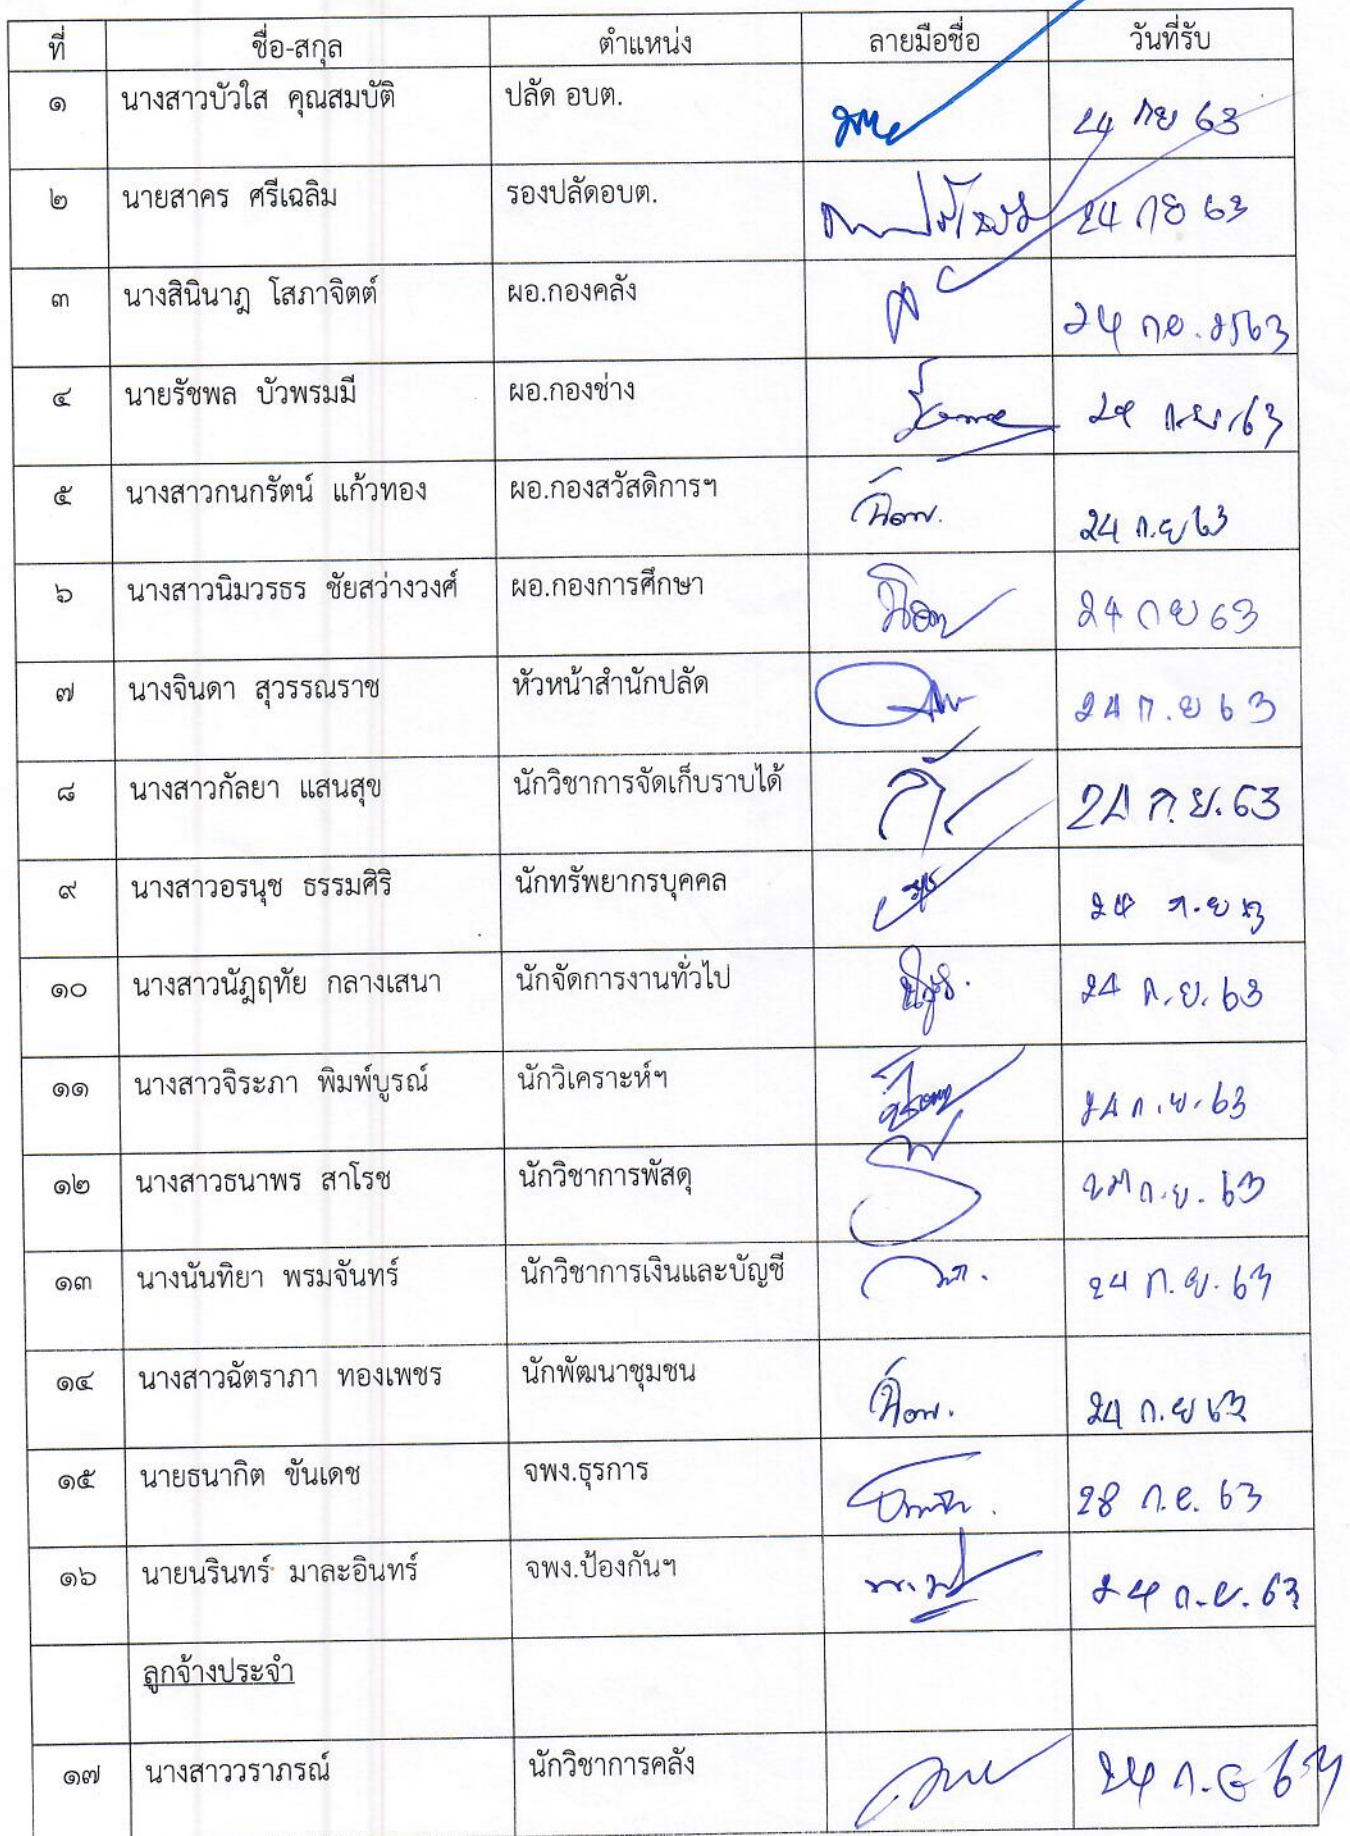 ที่ ชื่อ-สกุล ตำแหน่ง ลายมือชื่อ วันที่รับ
๑ นางสาวบัวใส คุณสมบัติ ปลัด อบต. 24 กย 63
๒ นายสาคร ศรีเฉลิม รองปลัดอบต. 24 กย 63
๓ นางสินินาฎ โสภาจิตต์ ผอ.กองคลัง 24 กย. 2563
๔ นายรัชพล บัวพรมมี ผอ.กองช่าง 24 ก.ย. 63
๕ นางสาวกนกรัตน์ แก้วทอง ผอ.กองสวัสดิการฯ 24 ก.ย 63
๖ นางสาวนิมวรธร ชัยสว่างวงศ์ ผอ.กองการศึกษา 24 กย 63
๗ นางจินดา สุวรรณราช หัวหน้าสำนักปลัด 24 ก.ย 63
๘ นางสาวกัลยา แสนสุข นักวิชาการจัดเก็บราบได้ 24 ก.ย. 63
๙ นางสาวอรนุช ธรรมศิริ นักทรัพยากรบุคคล 24 ก.ย 63
๑๐ นางสาวนัฎฤทัย กลางเสนา นักจัดการงานทั่วไป 24 ก.ย. 63
๑๑ นางสาวจิระภา พิมพ์บูรณ์ นักวิเคราะห์ฯ 24 ก.ย. 63
๑๒ นางสาวธนาพร สาโรช นักวิชาการพัสดุ ก.ย. 63
๑๓ นางนันทิยา พรมจันทร์ นักวิชาการเงินและบัญชี 24 ก.ย. 63
๑๔ นางสาวฉัตราภา ทองเพชร นักพัฒนาชุมชน 24 ก.ย 63
๑๕ นายธนากิต ขันเดช จพง.ธุรการ 28 ก.ย. 63
๑๖ นายนรินทร์ มาละอินทร์ จพง.ป้องกันฯ 24 ก.ย. 63
ลูกจ้างประจำ
๑๗ นางสาววราภรณ์ นักวิชาการคลัง 24 ก.ย 63